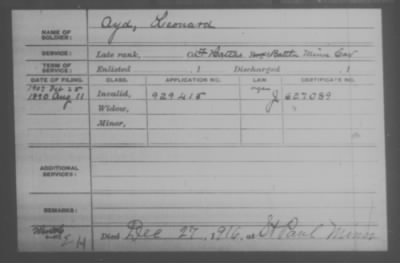 NAME OF SOLDIER: Ayd, Leonard
SERVICE: Late rank, Co. F Hatchs Battn Minn Cav
TERM OF SERVICE: Enlisted , 1 Discharged , 1
DATE OF FILING. CLASS. APPLICATION NO. LAW CERTIFICATE NO.
1890 Aug 11 Invalid, 929415 J 627089
Widow,
Minor,
ADDITIONAL SERVICES:
REMARKS:
Died Dec 27, 1916, at St Paul Minn